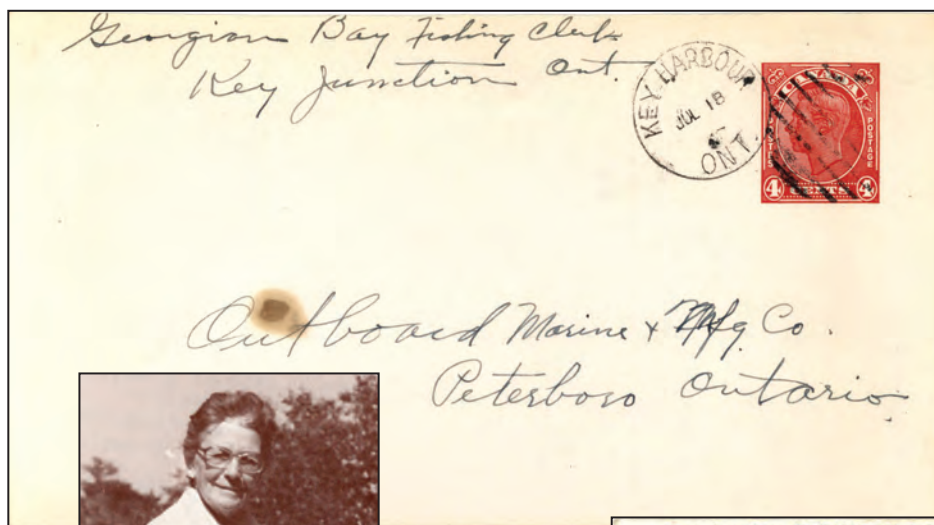 Georgian Bay Fishing Club
Key Junction Ont.
KEY HARBOUR
JUL 18
ONT.
CANADA
POSTES POSTAGE
4 CENTS 4
Outboard Marine & Mfg Co.
Peterboro Ontario